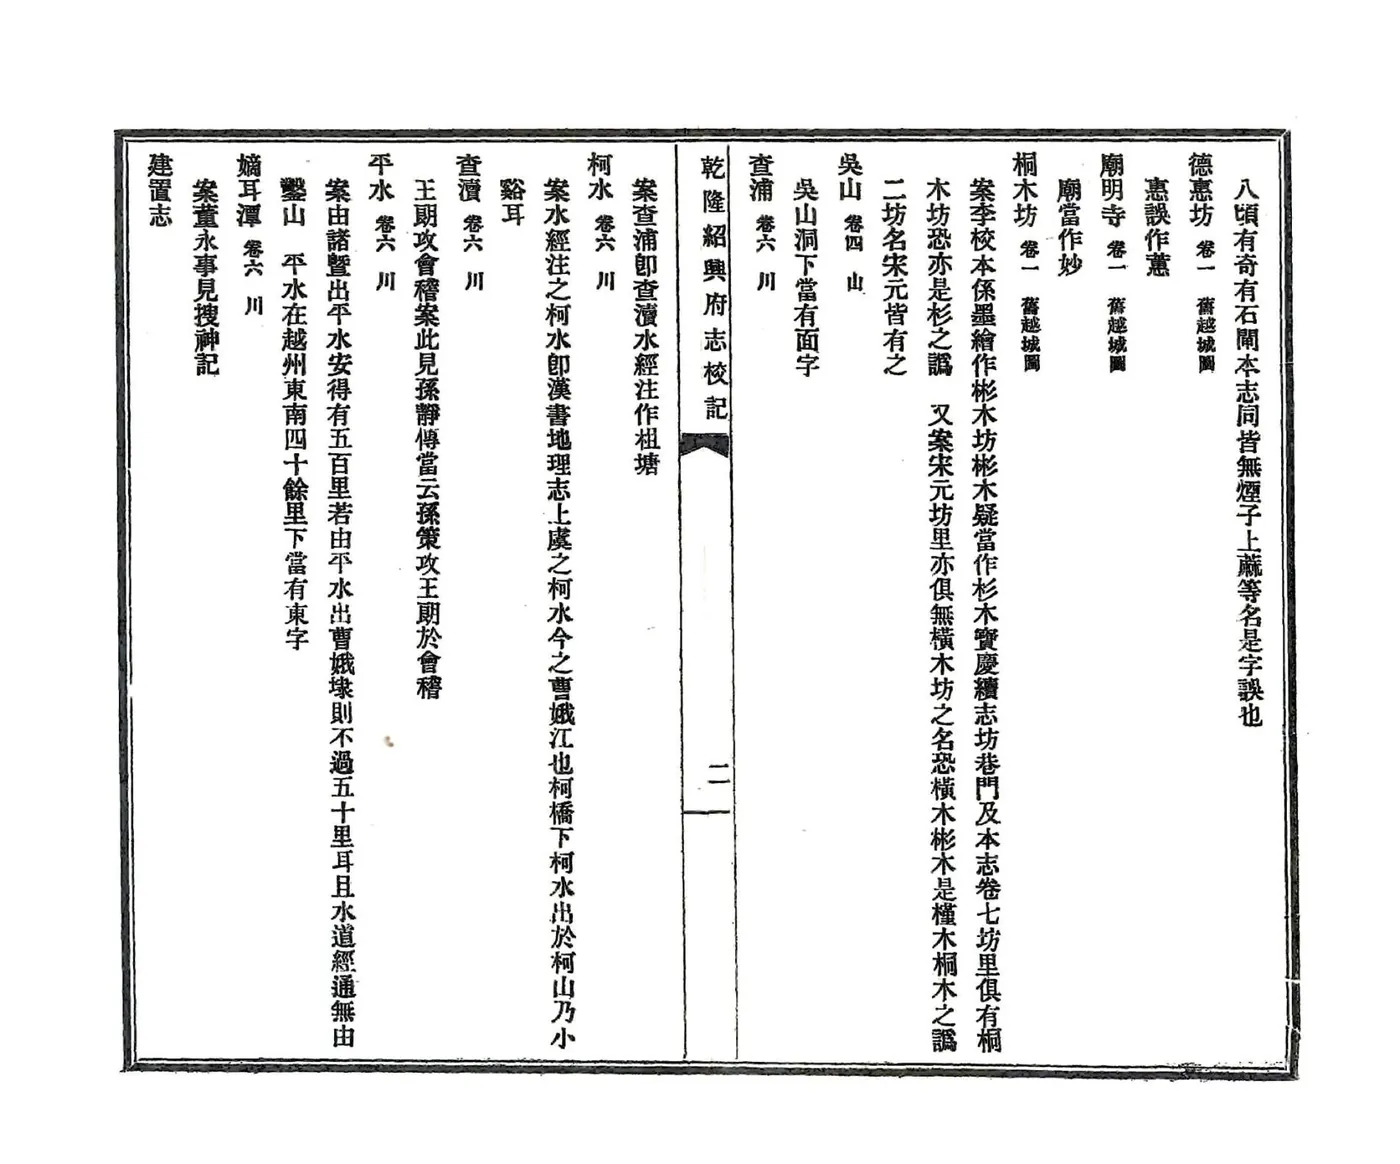 八頃有奇有石閘本志同皆無煙子上蔴等名是字誤也
德惠坊 卷一 舊越城圖
惠誤作蕙
廟明寺 卷一 舊越城圖
廟當作妙
桐木坊 卷一 舊越城圖
案李校本係墨繪作彬木坊彬木疑當作杉木寶慶續志坊巷門及本志卷七坊里俱有桐
木坊恐亦是杉之譌 又案宋元坊里亦俱無橫木坊之名恐橫木彬木是槿木桐木之譌
二坊名宋元皆有之
吳山 卷四 山
吳山洞下當有面字
查浦 卷六 川
乾隆紹興府志校記
二
案查浦卽查瀆水經注作柤塘
柯水 卷六 川
案水經注之柯水卽漢書地理志上虞之柯水今之曹娥江也柯橋下柯水出於柯山乃小
谿耳
查瀆 卷六 川
王朗攻會稽案此見孫靜傳當云孫策攻王朗於會稽
平水 卷六 川
案由諸暨出平水安得有五百里若由平水出曹娥埭則不過五十里耳且水道經通無由
鑿山 平水在越州東南四十餘里下當有東字
嫡耳潭 卷六 川
案董永事見搜神記
建置志